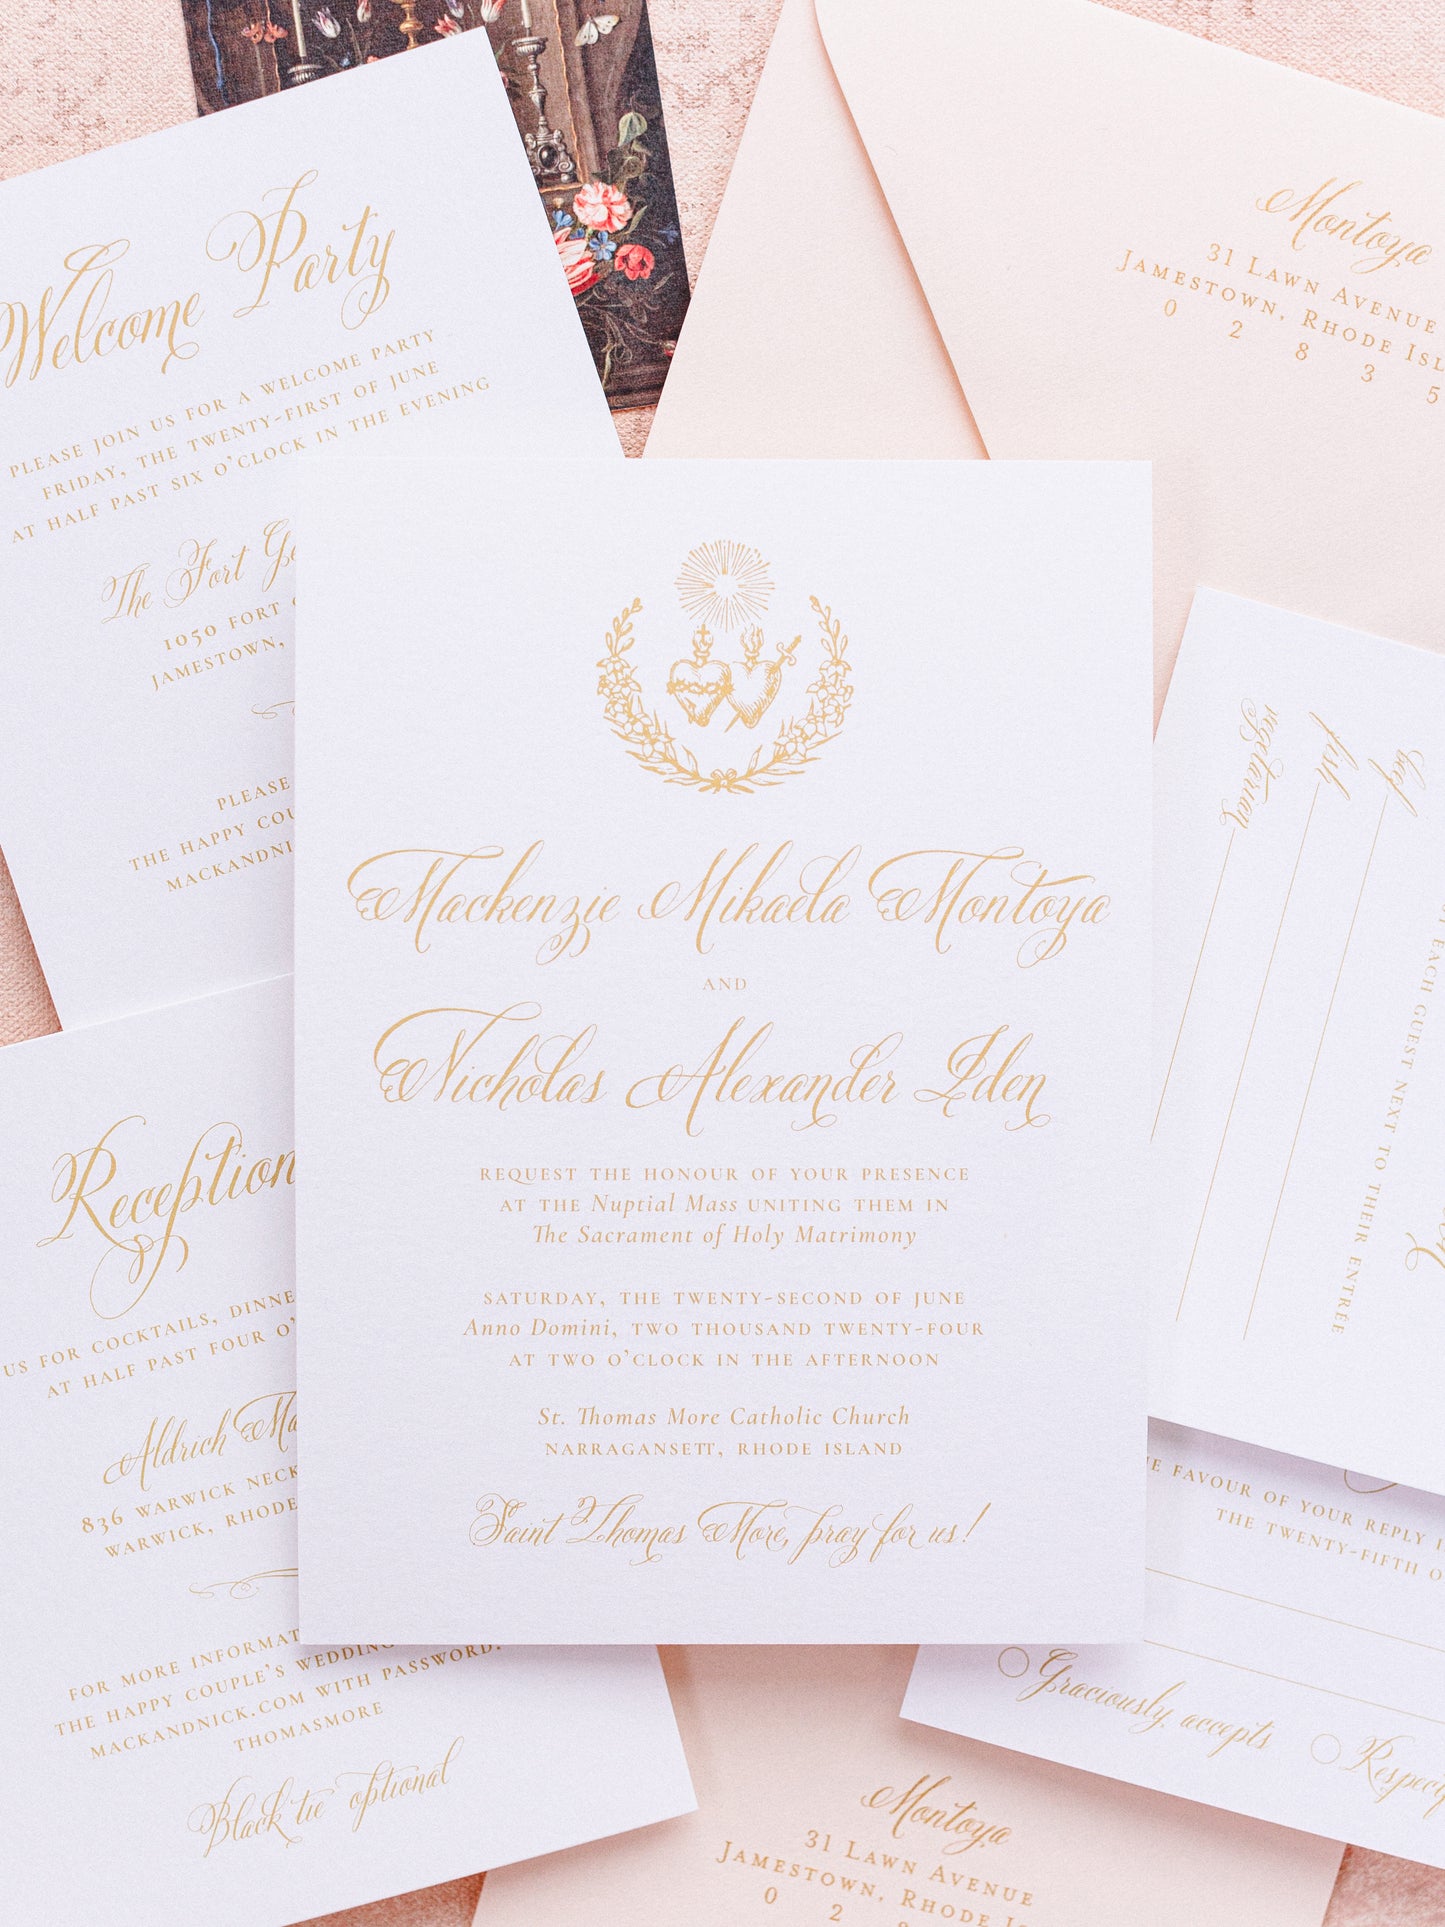 Welcome Party
PLEASE JOIN US FOR A WELCOME PARTY
FRIDAY, THE TWENTY-FIRST OF JUNE
AT HALF PAST SIX O'CLOCK IN THE EVENING
The Fort
1050 FORT
JAMESTOWN,
PLEASE
THE HAPPY
MACKANDNI
Montoya
31 LAWN AVENUE
JAMESTOWN, RHODE ISL
0 2 8 3 5
Mackenzie Mikaela Montoya
AND
Nicholas Alexander Iden
REQUEST THE HONOUR OF YOUR PRESENCE
AT THE Nuptial Mass UNITING THEM IN
The Sacrament of Holy Matrimony
SATURDAY, THE TWENTY-SECOND OF JUNE
Anno Domini, TWO THOUSAND TWENTY-FOUR
AT TWO O'CLOCK IN THE AFTERNOON
St. Thomas More Catholic Church
NARRAGANSETT, RHODE ISLAND
Saint Thomas More, pray for us!
Reception
US FOR COCKTAILS, DINNE
AT HALF PAST FOUR O'
Aldrich Ma
836 WARWICK NECK
WARWICK, RHODE
FOR MORE INFORMAT
THE HAPPY COUPLE'S WEDDING
MACKANDNICK.COM WITH PASSWORD:
THOMASMORE
Black tie optional
beef
fish
vegetarian
EACH GUEST NEXT TO THEIR ENTRÉE
FAVOUR OF YOUR REPLY
THE TWENTY-FIFTH O
Graciously accepts
Respec
Montoya
31 LAWN AVENUE
JAMESTOWN, RHODE
0 2